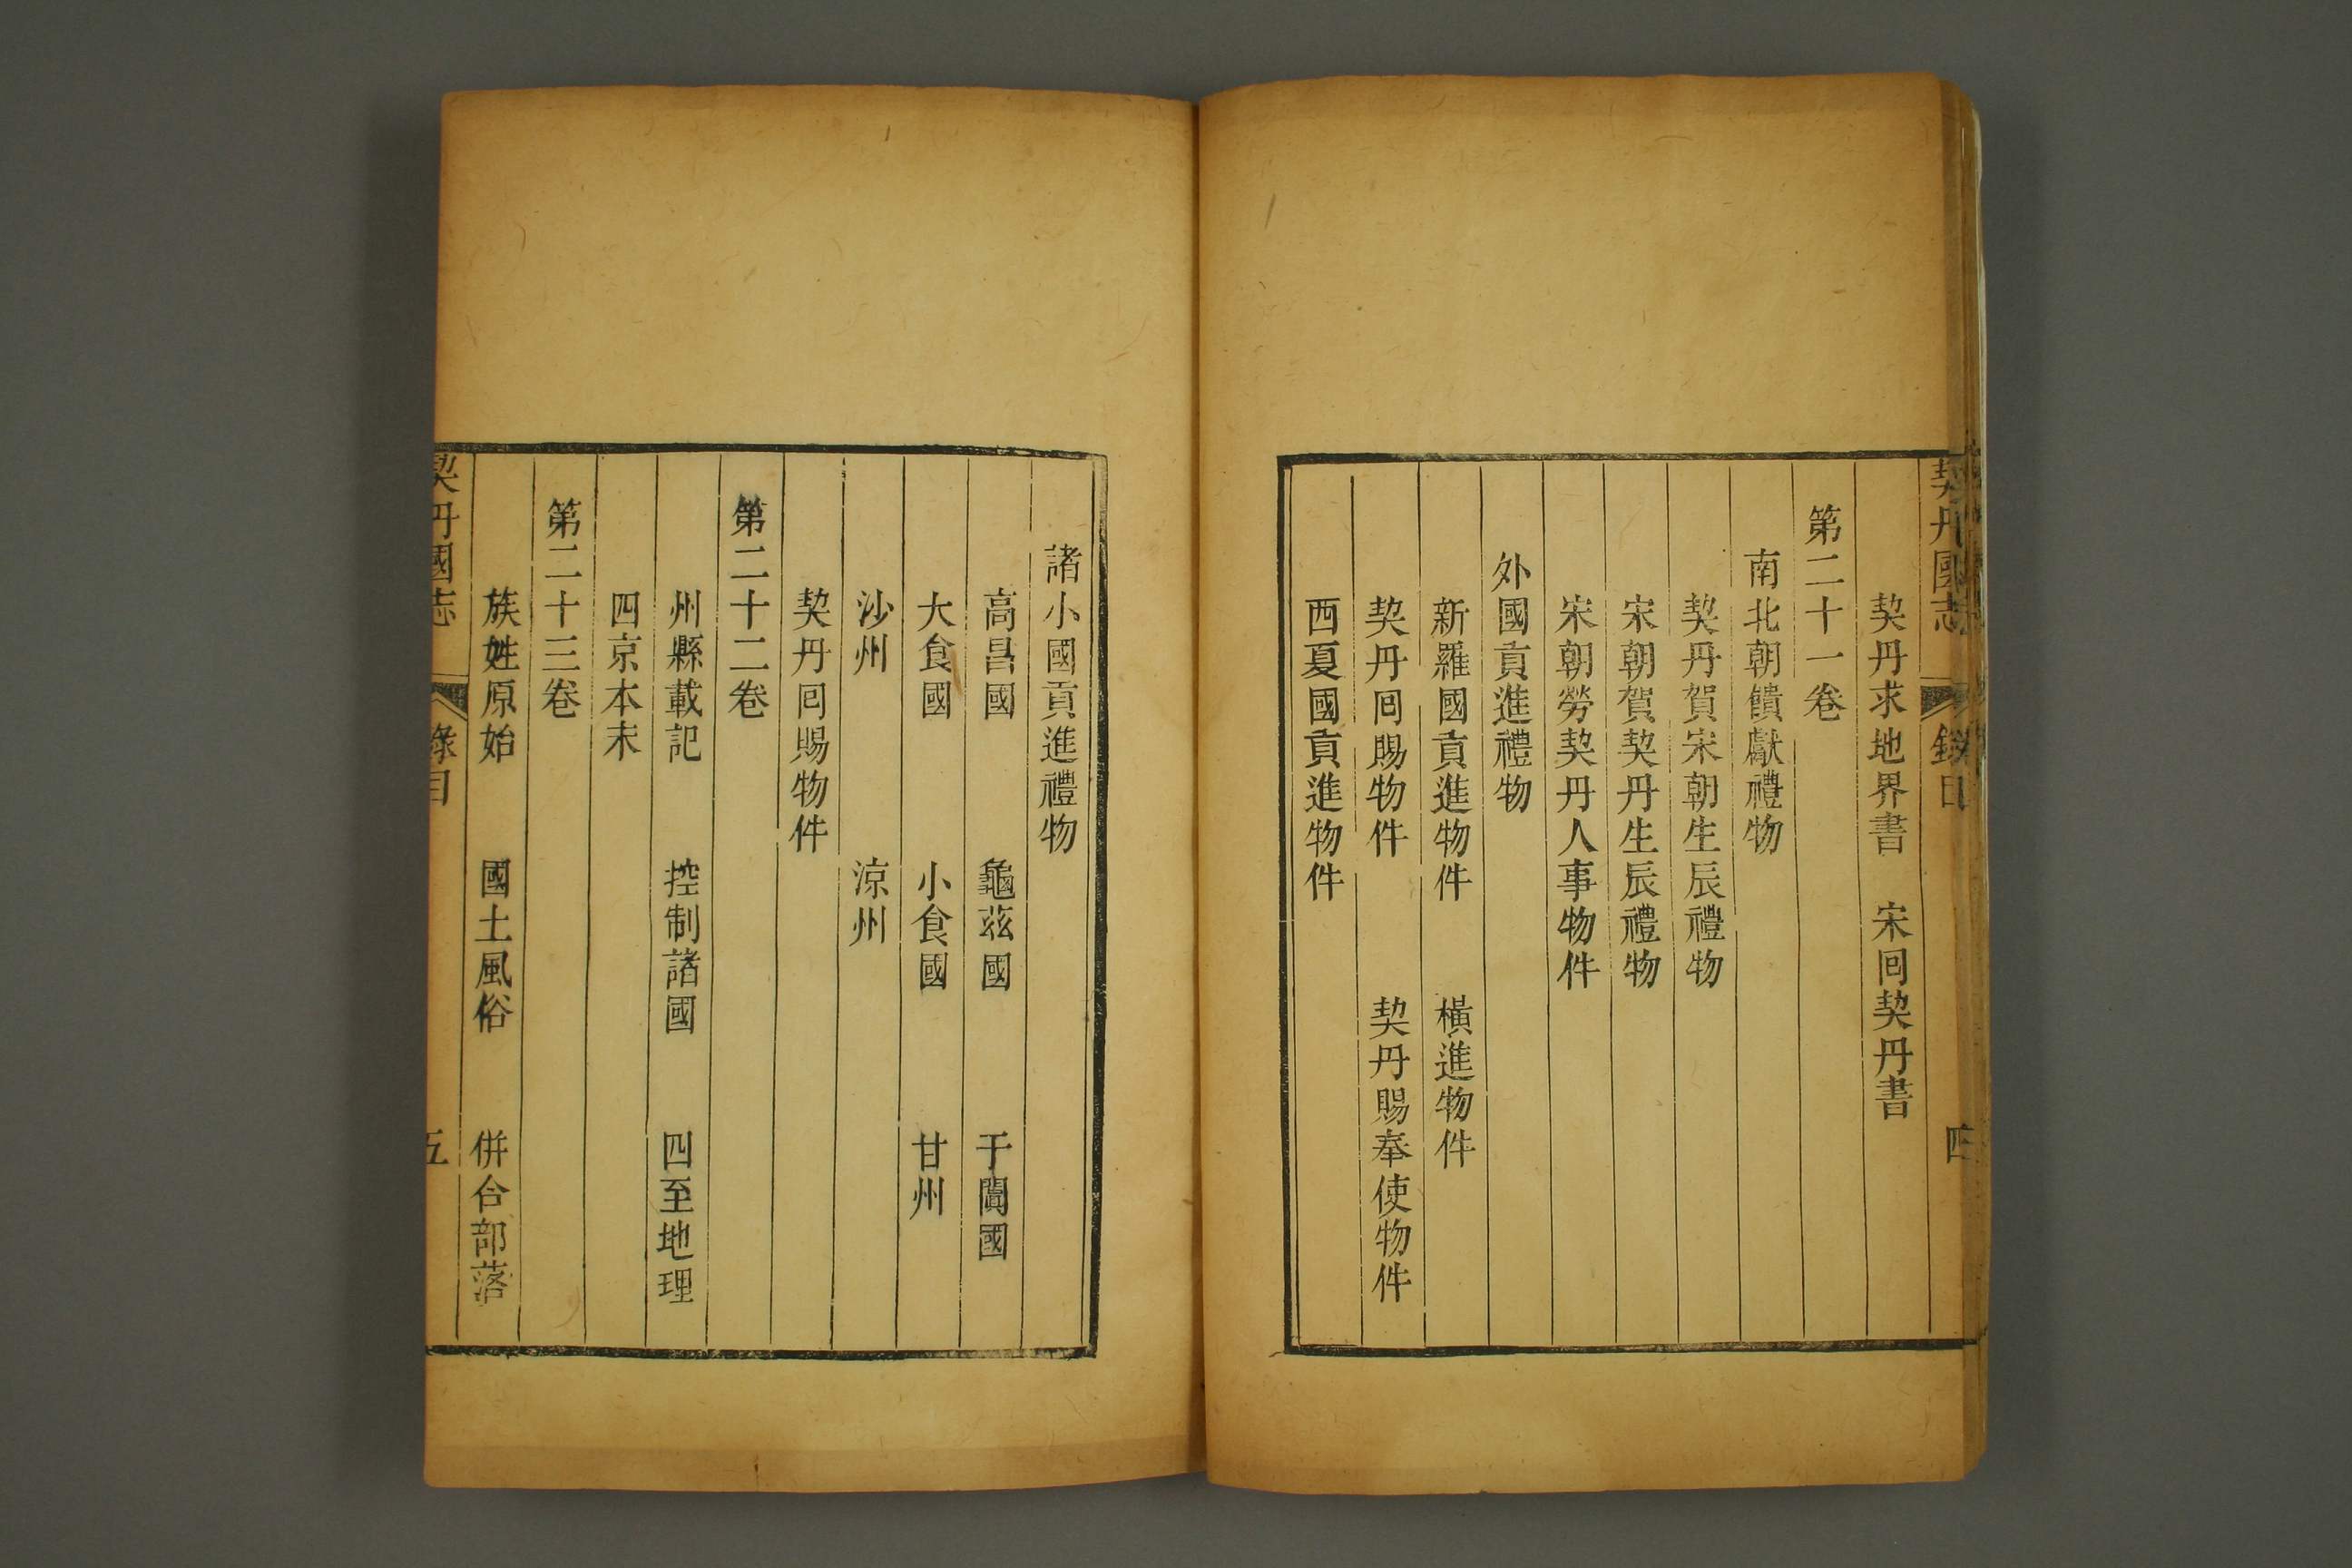 契丹國志 錄目 四
契丹求地界書 宋囘契丹書
第二十一卷
南北朝饋獻禮物
契丹賀宋朝生辰禮物
宋朝賀契丹生辰禮物
宋朝勞契丹人事物件
外國貢進禮物
新羅國貢進物件 橫進物件
契丹囘賜物件 契丹賜奉使物件
西夏國貢進物件
諸小國貢進禮物
高昌國 龜茲國 于闐國
大食國 小食國 甘州
沙州 涼州
契丹囘賜物件
第二十二卷
州縣載記 控制諸國 四至地理
四京本末
第二十三卷
族姓原始 國土風俗 併合部落
契丹國志 錄目 五